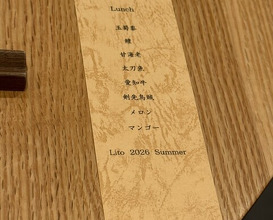 Lunch
玉蜀黍
鱧
甘海老
太刀魚
愛知牛
剣先烏賊
メロン
マンゴー
Lito 2026 Summer